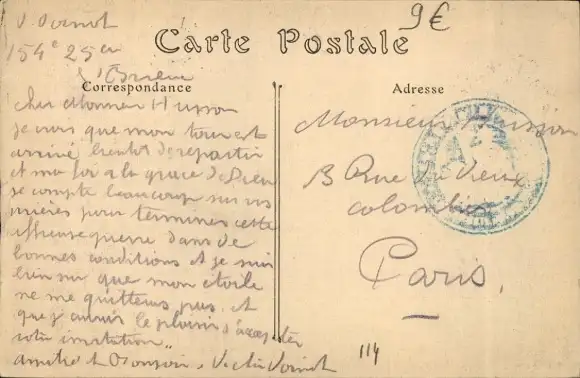 V. Voinot
9€
154e 25 Cie
Carte Postale
Correspondance
Adresse
cher Monsieur Husson
je crois que mon tour est
arrivé bientôt de repartir
et ma foi à la grace de Dieu
je compte beaucoup sur vos
prières pour terminer cette
affreuse guerre dans de
bonnes conditions et je suis
bien sur que mon étoile
ne me quittera pas et
que j'aurais le plaisir d'accepter
votre invitation..
amitié et Bonsoir. Victor Voinot
Monsieur Husson
13 Rue du Vieux
colombier
Paris.
114